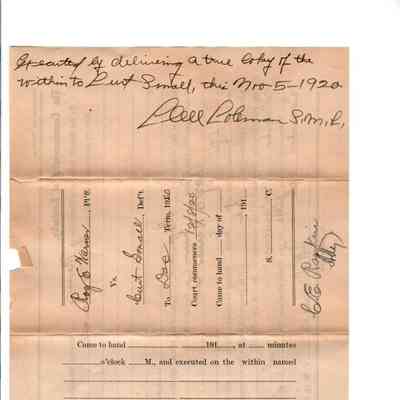 Executed by delivering a true Copy of the
within to Curt Small, this Nov 5-1920
Coleman S.M.C.
Roy E. Warner, Pltf.
Vs.
Curt Small, Deft.
To Dec Term, 1920
Court commences 12/6/20
Came to hand day of
191
S. C.
C.E. Rankin
Atty
Came to hand 191 , at minutes
o'clock M., and executed on the within named